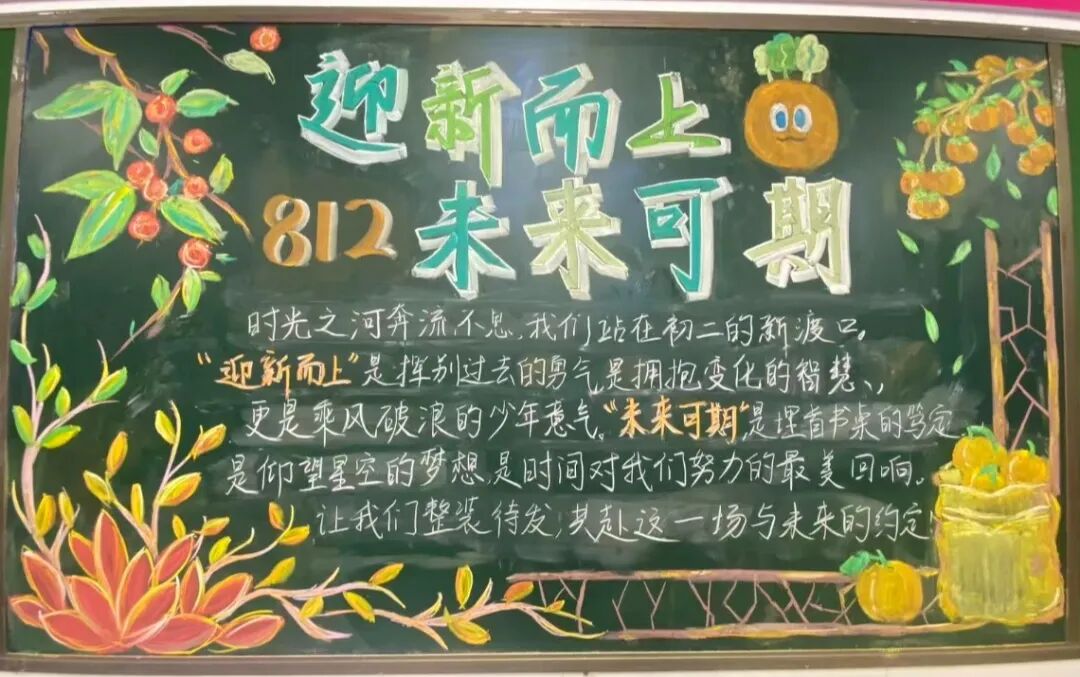 迎新而上
812 未来可期
时光之河奔流不息,我们站在初二的新渡口。
“迎新而上”是挥别过去的勇气,是拥抱变化的智慧、,
更是乘风破浪的少年意气。“未来可期”,是埋首书桌的笃定
是仰望星空的梦想,是时间对我们努力的最美回响。
让我们整装待发,共赴这一场与未来的约定!